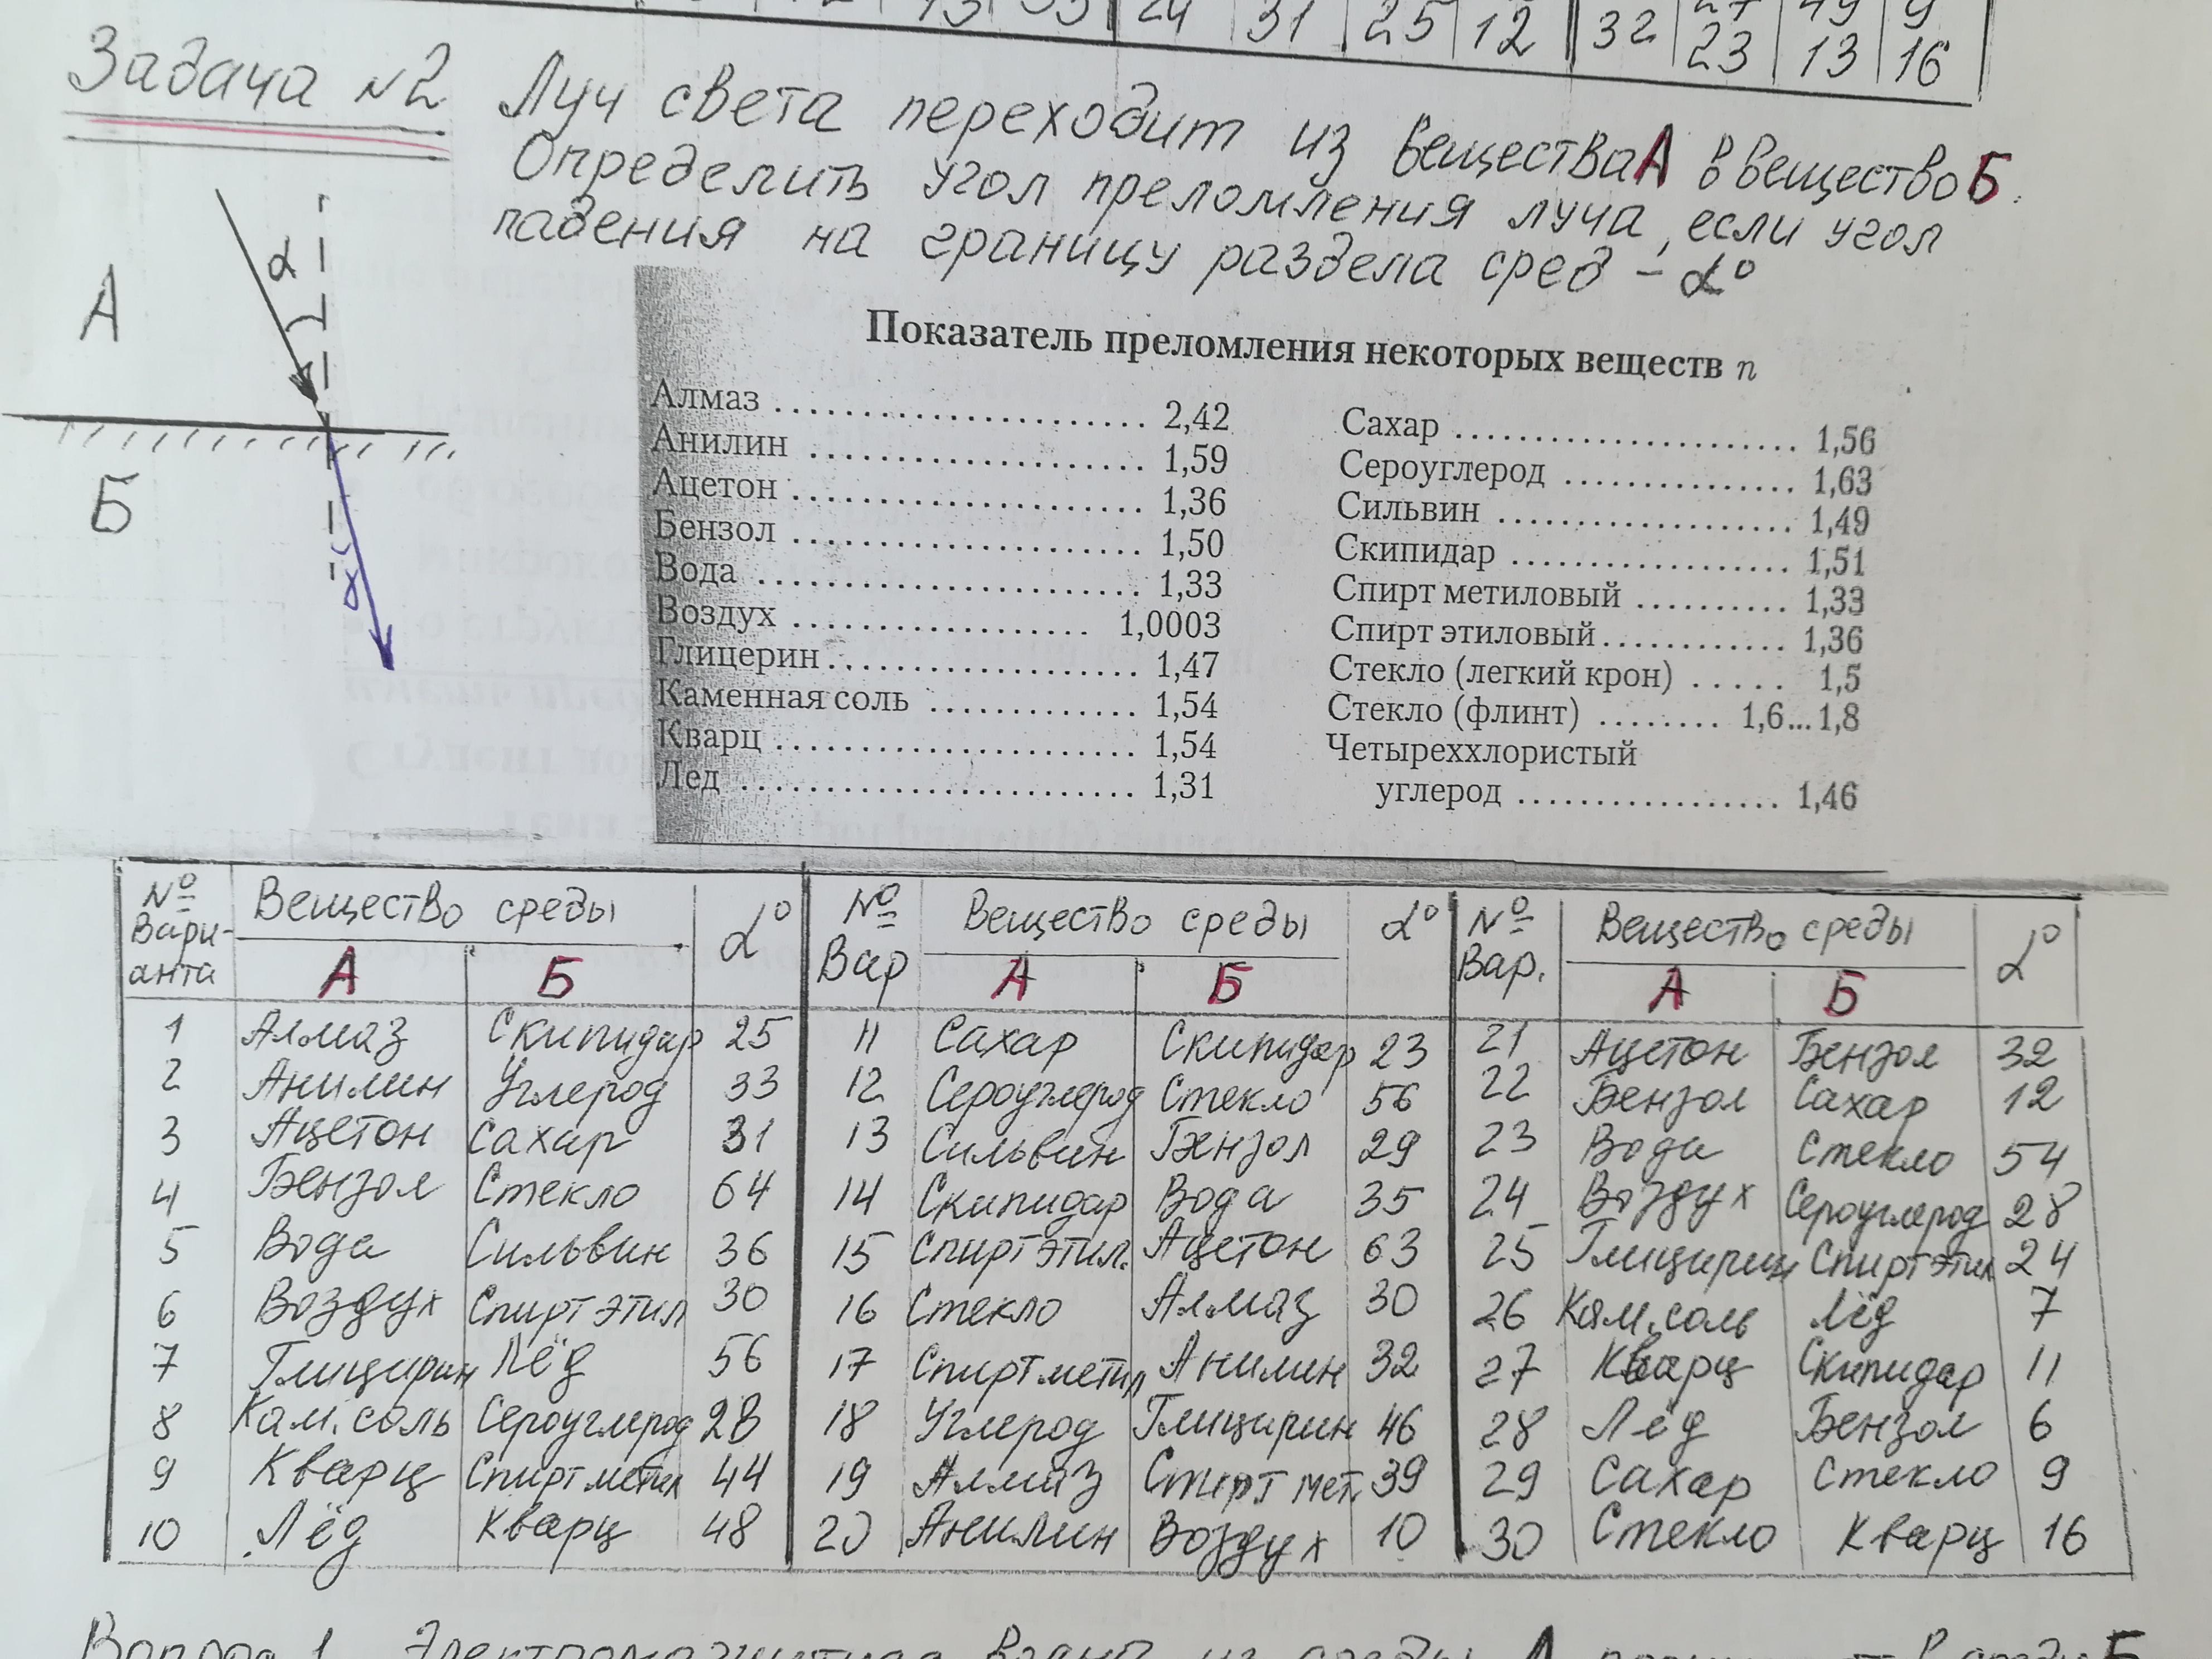 24 31 25 12 32 23 13 16
Задача №2 Луч света переходит из вещества А в вещество Б.
Определить угол преломления луча, если угол
падения на границу раздела сред – α°
α
А
Б
γ
Показатель преломления некоторых веществ n
Алмаз ........ 2,42
Анилин ........ 1,59
Ацетон ........ 1,36
Бензол ........ 1,50
Вода ........ 1,33
Воздух ........ 1,0003
Глицерин ........ 1,47
Каменная соль ........ 1,54
Кварц ........ 1,54
Лед ........ 1,31
Сахар ........ 1,56
Сероуглерод ........ 1,63
Сильвин ........ 1,49
Скипидар ........ 1,51
Спирт метиловый ........ 1,33
Спирт этиловый ........ 1,36
Стекло (легкий крон) ..... 1,5
Стекло (флинт) ........ 1,6...1,8
Четыреххлористый
углерод ........ 1,46
№ Вари-анта Вещество среды α° № Вар Вещество среды α° № Вар. Вещество среды α°
А Б А Б А Б
1 Алмаз Скипидар 25 11 Сахар Скипидар 23 21 Ацетон Бензол 32
2 Анилин Углерод 33 12 Сероуглерод Стекло 56 22 Бензол Сахар 12
3 Ацетон Сахар 31 13 Сильвин Бензол 29 23 Вода Стекло 54
4 Бензол Стекло 64 14 Скипидар Вода 35 24 Воздух Сероуглерод 28
5 Вода Сильвин 36 15 Спирт этил. Ацетон 63 25 Глицирин Спирт этил 24
6 Воздух Спирт этил 30 16 Стекло Алмаз 30 26 Кам. соль Лёд 7
7 Глицирин Лёд 56 17 Спирт метил Анилин 32 27 Кварц Скипидар 11
8 Кам. соль Сероуглерод 28 18 Углерод Глицирин 46 28 Лёд Бензол 6
9 Кварц Спирт метил 44 19 Алмаз Спирт мет. 39 29 Сахар Стекло 9
10 Лёд Кварц 48 20 Анилин Воздух 10 30 Стекло Кварц 16